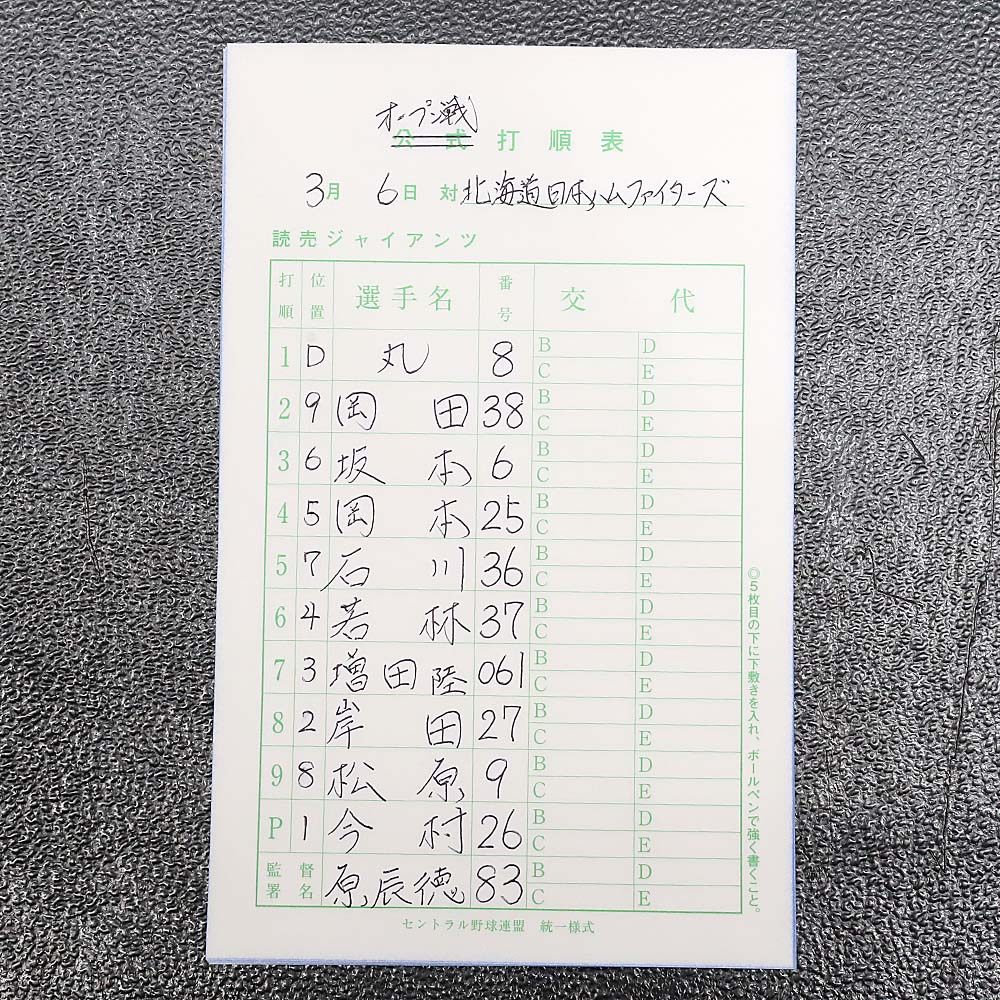 オープン戦
公式打順表
3月 6日 対 北海道日本ハムファイターズ
読売ジャイアンツ
打順 位置 選手名 番号 交代
1 D 丸 8 B D
C E
2 9 岡田 38 B D
C E
3 6 坂本 6 B D
C E
4 5 岡本 25 B D
C E
5 7 石川 36 B D
C E
6 4 若林 37 B D
C E
7 3 増田陸 061 B D
C E
8 2 岸田 27 B D
C E
9 8 松原 9 B D
C E
P 1 今村 26 B D
C E
監督署名 原辰徳 83 B D
C E
◎5枚目の下に下敷きを入れ、ボールペンで強く書くこと。
セントラル野球連盟 統一様式